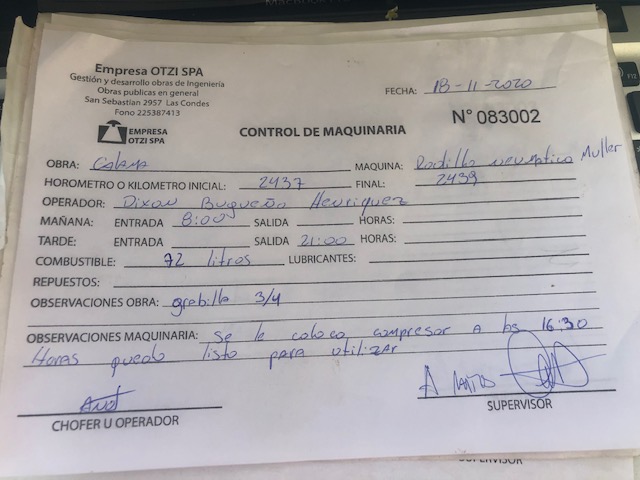 Empresa OTZI SPA
Gestión y desarrollo obras de Ingeniería
Obras publicas en general
San Sebastian 2957 Las Condes
Fono 225387413
FECHA: 18-11-2020
EMPRESA
OTZI SPA
CONTROL DE MAQUINARIA
N° 083002
OBRA: MAQUINA: Rodillo neumatico Muller
HOROMETRO O KILOMETRO INICIAL: 2437 FINAL: 2439
OPERADOR: Dixon Henriquez
MAÑANA: ENTRADA 8:00 SALIDA HORAS:
TARDE: ENTRADA SALIDA 21:00 HORAS:
COMBUSTIBLE: 92 litros LUBRICANTES:
REPUESTOS:
OBSERVACIONES OBRA: grabilla 3/4
OBSERVACIONES MAQUINARIA: Se le coloco compresor A las 16:30
Horas quedo listo para utilizar
CHOFER U OPERADOR
SUPERVISOR
SUPERVISOR